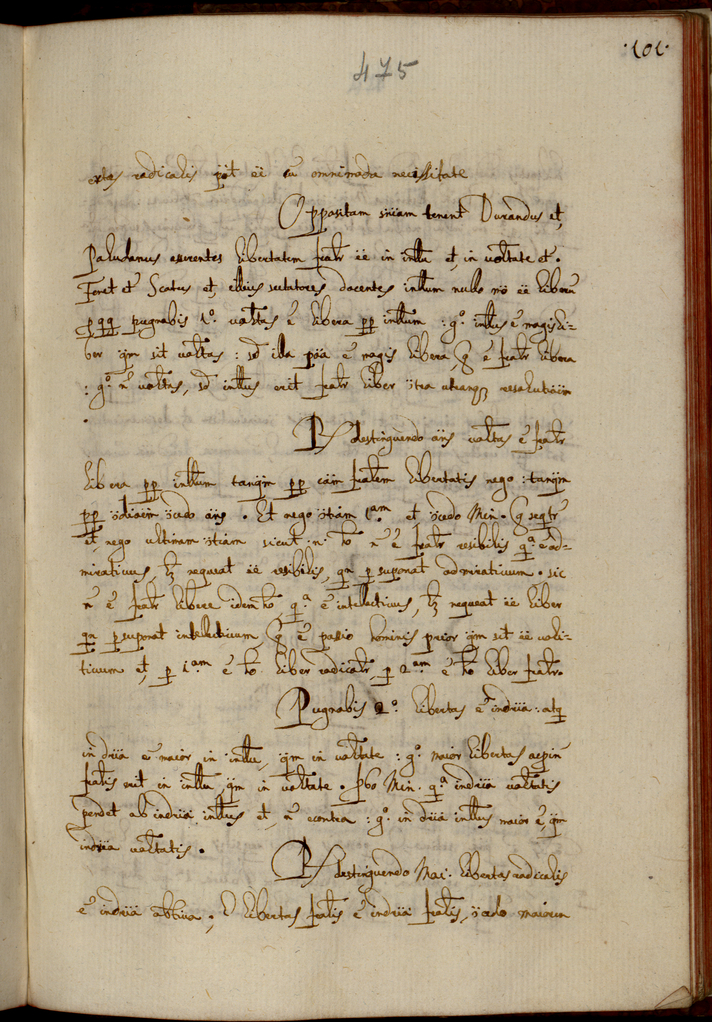 ·101·
475
radicalis põt ēē cū omnimoda necessitate
Oppositam sñiam tenent Durandus et,
Paludanus asserentes libertatem fralr ēē in intllu et, in voltate et.
Foret et Scotus et, ellius sectatores docentes intllum nullo mõ ēē liberũ
pugnabis 1.º voltas ē libera pp intllum : gº. intllus ē magis li-
ber q̃m sit voltas : sd illa põa ē magis libera, q̃ ē fralr libera
: gº. ñ voltas, sd intllus erit fralr liber õtra utranq resolutiõẽm
Rs destinguendo añs voltas ē fralr
libera pp intllum tanq̃m pp cãm fralem libertatis nego : tanq̃m
pp õdiõẽm õcedo añs . Et nego õtiam 1.am et õcedo Min. q̃ seqtr
et, nego ultimam õtiam sicut .n. hõ ñ ē fralr resibilis q.a ē ad-
mirativus, lz nequeat ēē resibilis, qn p suponat admirativum . sic
ñ ē fralr libere idem hõ, q.a ē intellectivus, lz nequeat ēē liber
qn p suponat intelectivum, q̃ ē passio hominis prior q̃m sit ēē voli-
tivum et, p 1.am ē hõ liber radicalr, p 2.am ē hõ liber fralr.
Pugnabis 2.º libertas ē indr̃ia : atq
indr̃ia ē maior in intllu, q̃m in voltate : gº. maior libertas
fralis erit in intllu, q̃m in voltate . Pbo Min. q.a indr̃ia voltatis
pendet ab indr̃ia intllus et, ñ econtra : gº. indr̃ia intllus maior ē, q̃m
indr̃ia voltatis .
Rs destinguendo Mai. libertas radicalis
ē indr̃ia ; libertas fralis ē indr̃ia fralis, õcedo maiorem